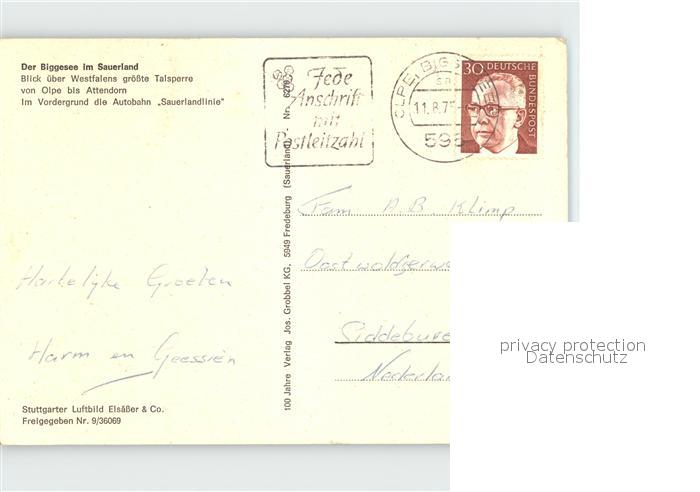 Der Biggesee im Sauerland
Blick über Westfalens größte Talsperre
von Olpe bis Attendorn
Im Vordergrund die Autobahn „Sauerlandlinie"
Jede
Anschrift
mit
Postleitzahl
OLPE, BIGGES
11.8.75
596
30 DEUTSCHE BUNDESPOST
100 Jahre Verlag Jos. Grobbel KG, 5949 Fredeburg (Sauerland) Nr. 6270
Fam A.B. Klimp
Siddebure
Nederlan
Hartelijke Groeten
Harm en Geessien
Stuttgarter Luftbild Elsäßer & Co.
Freigegeben Nr. 9/36069
privacy protection
Datenschutz